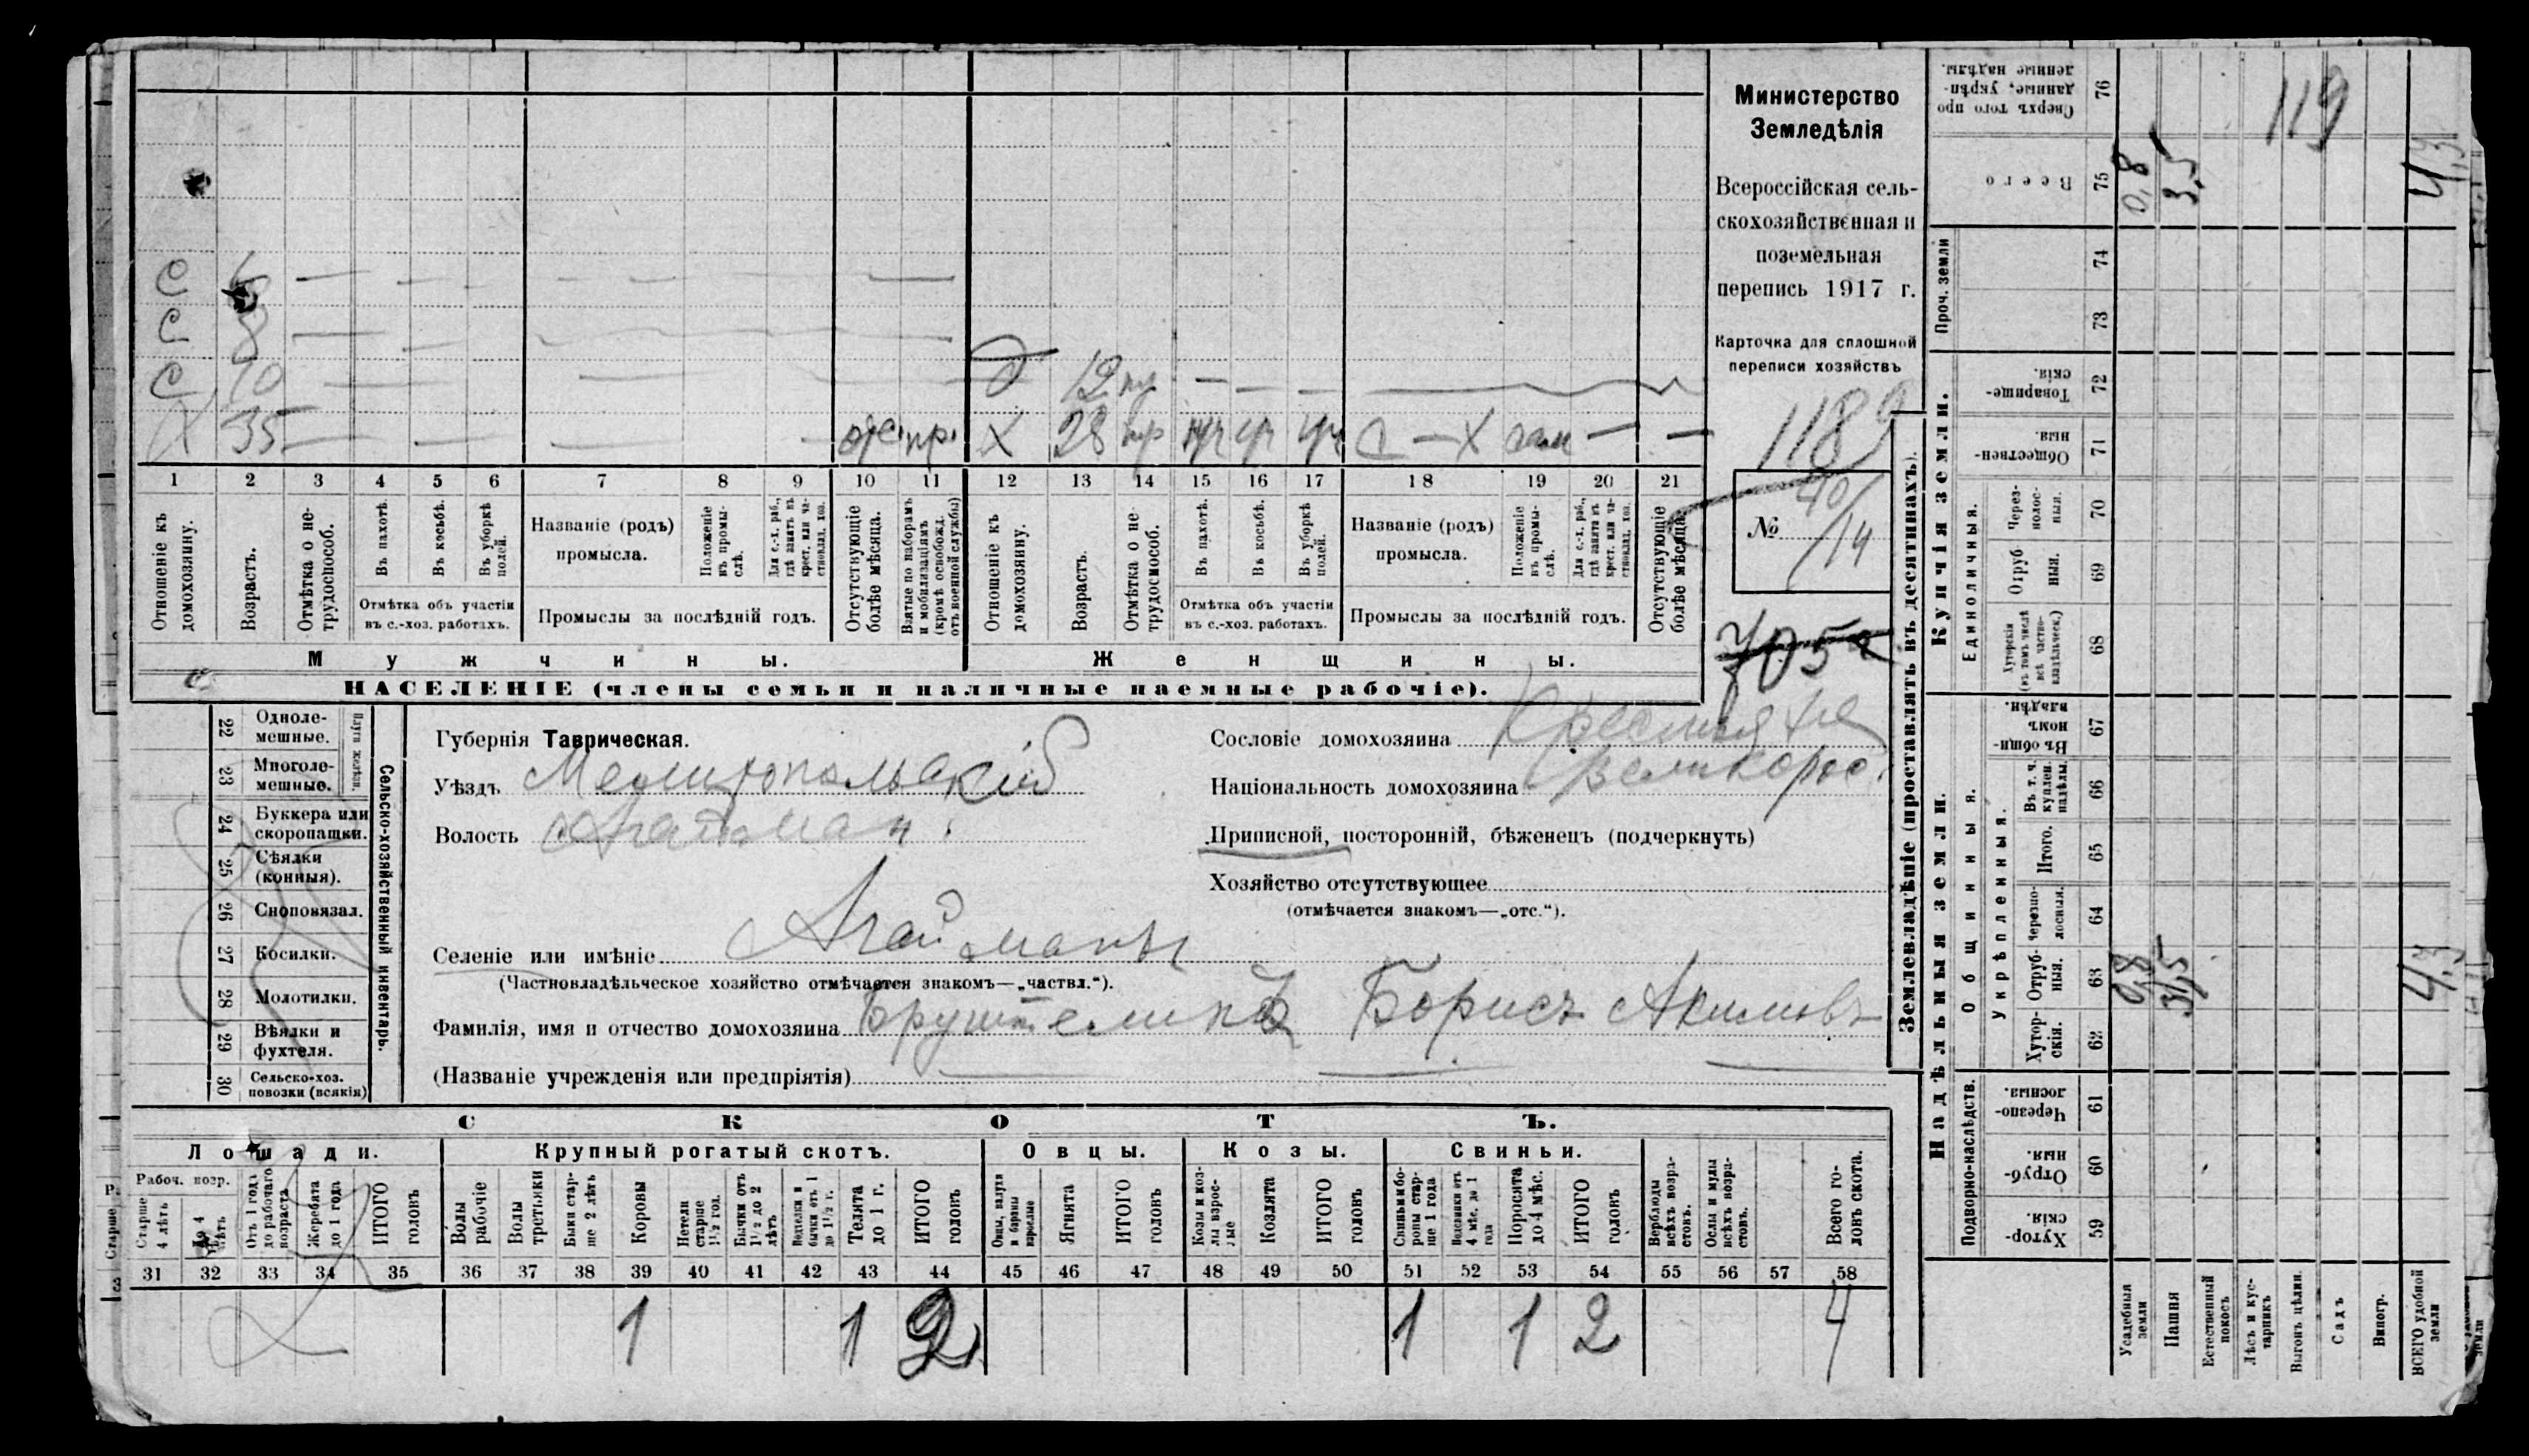 Министерство
Земледѣлія
Всероссійская сель-
скохозяйственная и
поземельная
перепись 1917 г.
Карточка для сплошной
переписи хозяйствъ
1189
№ 40/14
705
С 6 — — — —
С 8 — — —
С 10 — — — д 12 — — —
Х 35 — — — отс. пр. Х 28 С — Х сам — —
1 2 3 4 5 6 7 8 9 10 11 12 13 14 15 16 17 18 19 20 21
Отношеніе къ домохозяину.
Возрастъ.
Отмѣтка о не-трудоспособ.
Въ пахотѣ.
Въ косьбѣ.
Въ уборкѣ полей.
Отмѣтка объ участіи
въ с.-хоз. работахъ.
Названіе (родъ)
промысла.
Положеніе въ промы-слѣ.
Для с.-х. раб., гдѣ занятъ въ крест. или ча-стновлад. хоз.
Промыслы за послѣдній годъ.
Отсутствующіе болѣе мѣсяца.
Взятые по наборамъ и мобилизаціямъ (кромѣ освобожд. отъ военной службы)
Отношеніе къ домохозяину.
Возрастъ.
Отмѣтка о не-трудоспособ.
Въ пахотѣ.
Въ косьбѣ.
Въ уборкѣ полей.
Отмѣтка объ участіи
въ с.-хоз. работахъ.
Названіе (родъ)
промысла.
Положеніе въ промы-слѣ.
Для с.-х. раб., гдѣ занята въ крест. или ча-стновлад. хоз.
Промыслы за послѣдній годъ.
Отсутствующіе болѣе мѣсяца.
Мужчины.
Женщины.
НАСЕЛЕНІЕ (члены семьи и наличные наемные рабочіе).
22 Одноле-мешные.
23 Многоле-мешные.
24 Буккера или скоропашки.
25 Сѣялки (конныя).
26 Сноповязал.
27 Косилки.
28 Молотилки.
29 Вѣялки и фухтеля.
30 Сельско-хоз. повозки (всякія)
Сельско-хозяйственный инвентарь.
Губернія Таврическая.
Уѣздъ Мелитопольскій
Волость Агайман.
Селеніе или имѣніе Агайманы
(Частновладѣльческое хозяйство отмѣчается знакомъ—„частвл.“).
Фамилія, имя и отчество домохозяина Борисъ Акимовъ
(Названіе учрежденія или предпріятія)
Сословіе домохозяина
Національность домохозяина великорос.
Приписной, посторонній, бѣженецъ (подчеркнуть)
Хозяйство отсутствующее
(отмѣчается знакомъ—„отс.“).
СКОТЪ.
Лошади.
Крупный рогатый скотъ.
Овцы.
Козы.
Свиньи.
Рабоч. возр.
Старше 4 лѣтъ
До 4 лѣтъ
Отъ 1 года до рабочаго возраста
Жеребята до 1 года
ИТОГО головъ
Волы рабочіе
Волы третьяки
Быки стар-ше 2 лѣтъ
Коровы
Нетели старше 1½ год.
Бычки отъ 1½ до 2 лѣтъ
Телки и бычки отъ 1 до 1½ г.
Телята до 1 г.
ИТОГО головъ
Овцы, валухи и бараны взрослые
Ягнята
ИТОГО головъ
Козы и коз-лы взрос-лые
Козлята
ИТОГО головъ
Свиньи бо-ровы стар-ше 1 года
Подсвинки отъ 4 мѣс. до 1 года
Поросята до 4 мѣс.
ИТОГО головъ
Верблюды всѣхъ возра-стовъ.
Ослы и мулы всѣхъ возра-стовъ.
Всего го-ловъ скота.
31 32 33 34 35 36 37 38 39 40 41 42 43 44 45 46 47 48 49 50 51 52 53 54 55 56 57 58
1 1 2 1 1 2 4
Землевладѣніе (проставлять въ десятинахъ).
Надѣльныя земли.
Купчія земли.
Проч. земли
Подворно-наслѣдств.
Общинныя.
Укрѣпленныя.
Единоличныя.
Сверхъ того про данные, укрѣп-ленные надѣлы. 76
Всего 75
74
73
Товарище-скія. 72
Обществен-ныя. 71
Через-полос-ныя. 70
Отруб-ныя. 69
Хуторскія (въ томъ числѣ всѣ частно-владѣльческ.) 68
Въ общин-номъ владѣн. 67
Въ т. ч. куплен. надѣлы. 66
Итого. 65
Черезпо-лосныя. 64
Отруб-ныя. 63
Хутор-скія. 62
Черезпо-лосныя. 61
Отруб-ныя. 60
Хутор-скія. 59
Усадебныя земли
Пашня
Естественный покосъ
Лѣсъ и кус-тарникъ
Выгонъ цѣлин.
Садъ
Виногр.
ВСЕГО удобной земли
119
0,8 3,5 4,3
0,8 3,5 4,3